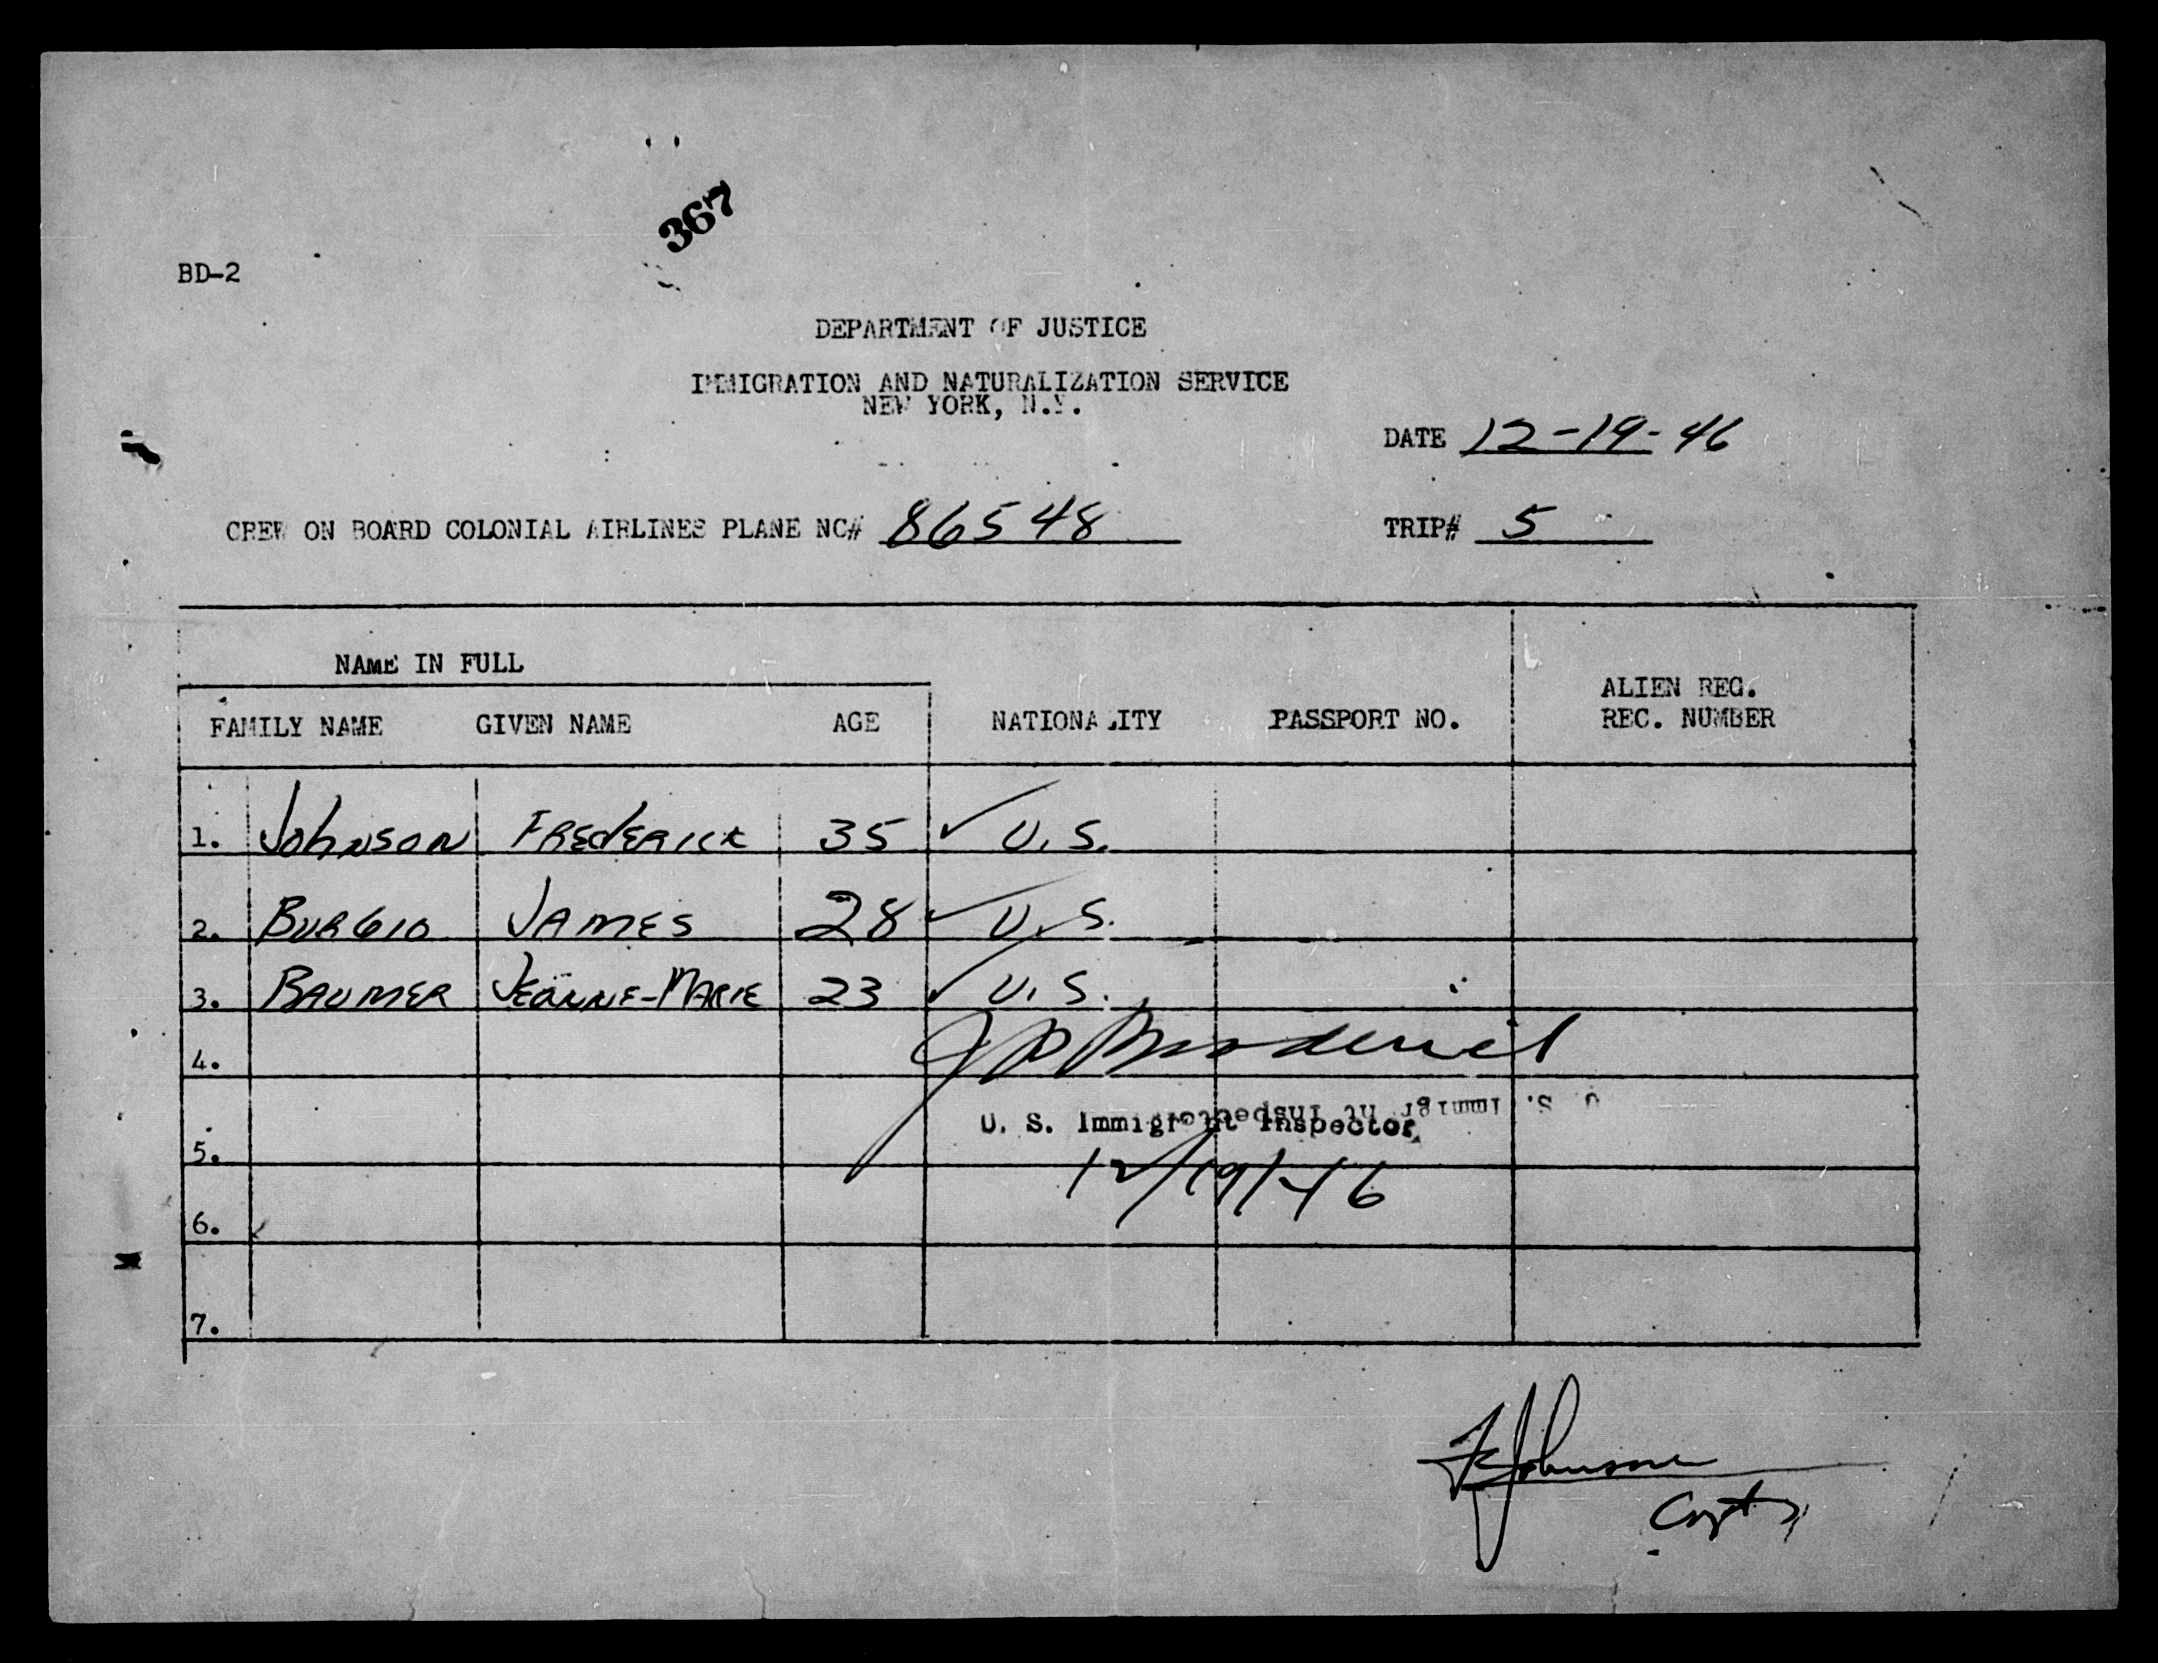 367
BD-2
DEPARTMENT OF JUSTICE
IMMIGRATION AND NATURALIZATION SERVICE
NEW YORK, N.Y.
DATE 12-19-46
CREW ON BOARD COLONIAL AIRLINES PLANE NC# 86548 TRIP# 5
NAME IN FULL
FAMILY NAME GIVEN NAME AGE NATIONALITY PASSPORT NO. ALIEN REG. REC. NUMBER
1. Johnson FREDERICK 35 ✓ U.S.
2. BURGIO JAMES 28 ✓ U.S.
3. BAUMER JEANNE-MARIE 23 ✓ U.S.
4.
U. S. Immigrant Inspector
U. S. Immigrant Inspector
5.
12/19/46
6.
7.
F Johnson
Capt.